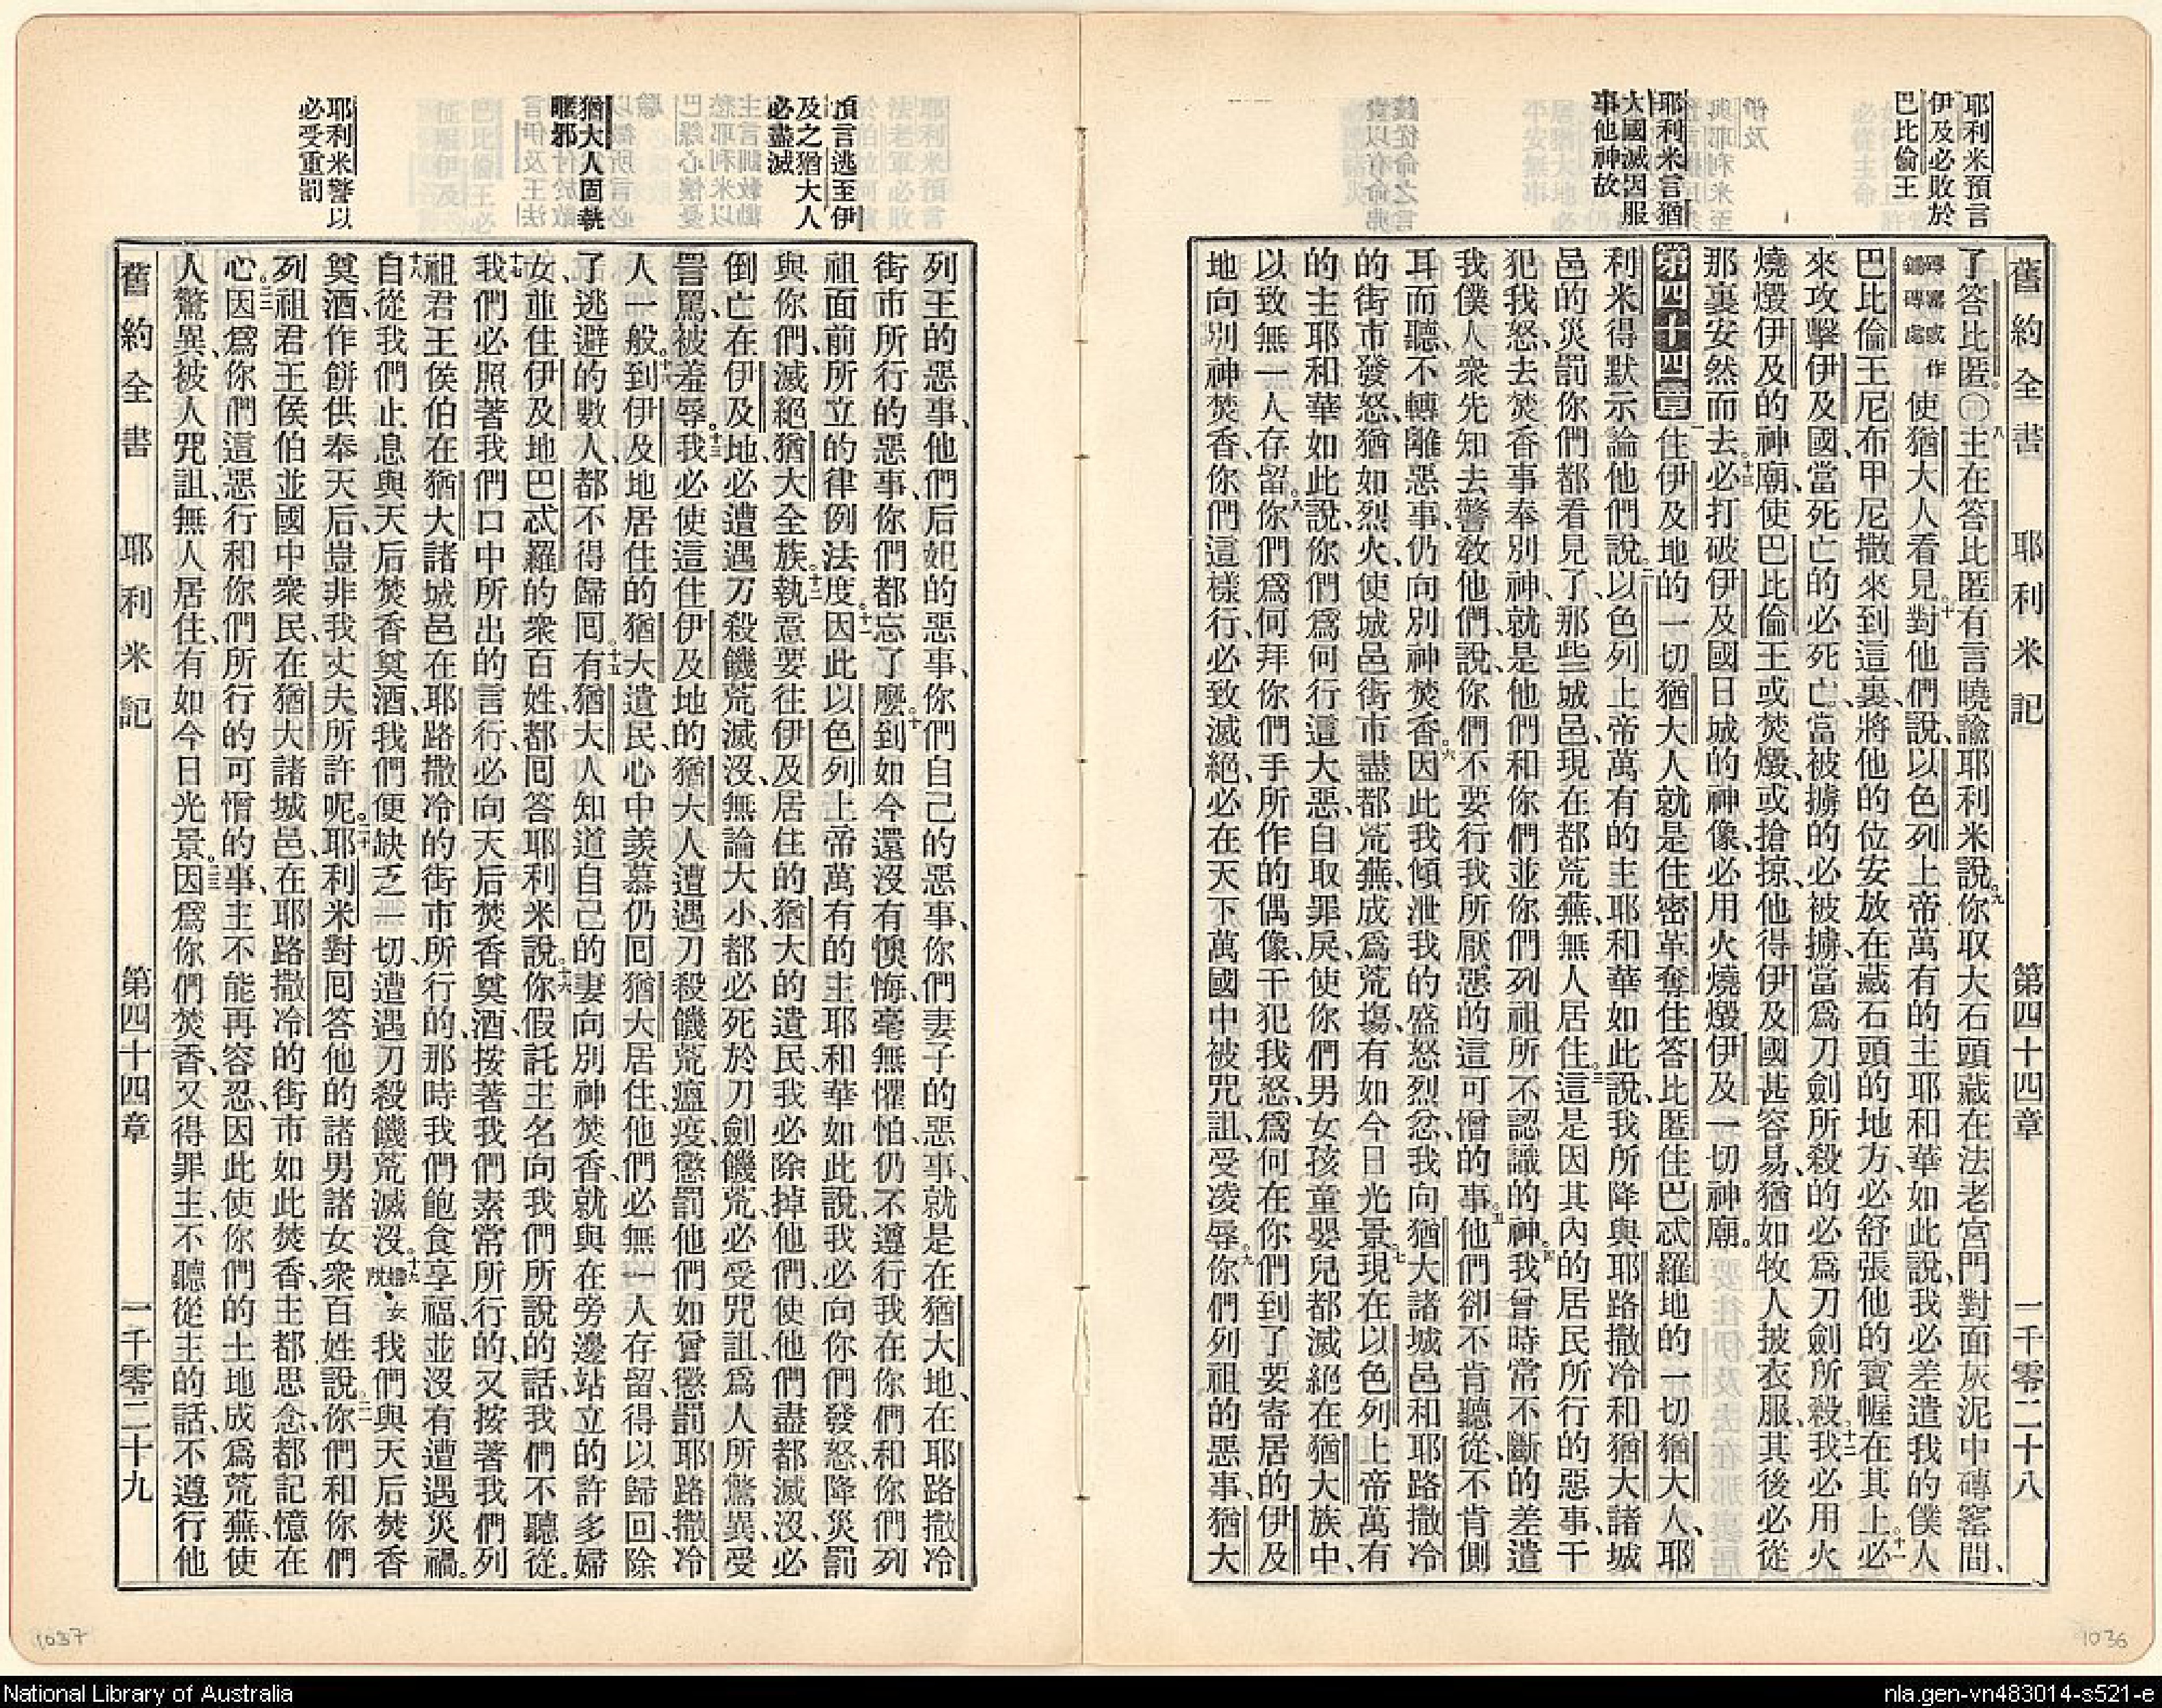 耶利米預言
伊及必敗於
巴比倫王
耶利米言猶
大國滅因服
事他神故
舊約全書 耶利米記 第四十四章 一千零二十八
了答比匿。〇八主在答比匿有言曉諭耶利米說。九你取大石頭藏在法老宮門對面灰泥中磚窰間、
磚窰或作鋪磚處使猶大人看見。十對他們說、以色列上帝萬有的主耶和華如此說、我必差遣我的僕人
巴比倫王尼布甲尼撒來到這裏、將他的位安放在藏石頭的地方、必舒張他的寶幄在其上。十一必
來攻擊伊及國、當死亡的必死亡、當被擄的必被擄、當爲刀劍所殺的必爲刀劍所殺。十二我必用火
燒燬伊及的神廟、使巴比倫王或焚燬、或搶掠、他得伊及國甚容易、猶如牧人披衣服、其後必從
那裏安然而去。十三必打破伊及國日城的神像、必用火燒燬伊及一切神廟。
第四十四章 一住伊及地的一切猶大人就是住密革奪住答比匿住巴忒羅地的一切猶大人、耶
利米得默示論他們說。二以色列上帝萬有的主耶和華如此說、我所降與耶路撒冷和猶大諸城
邑的災罰你們都看見了、那些城邑、現在都荒蕪、無人居住。三這是因其內的居民所行的惡事、干
犯我怒、去焚香事奉別神、就是他們和你們並你們列祖所不認識的神。四我曾時常不斷的差遣
我僕人衆先知去警敎他們、說、你們不要行我所厭惡的這可憎的事。五他們卻不肯聽從、不肯側
耳而聽、不轉離惡事、仍向別神焚香。六因此我傾泄我的盛怒烈忿、我向猶大諸城邑和耶路撒冷
的街市發怒、猶如烈火、使城邑街市盡都荒蕪、成爲荒塲、有如今日光景。七現在以色列上帝萬有
的主耶和華如此說、你們爲何行這大惡、自取罪戾、使你們男女孩童嬰兒都滅絕在猶大族中、
以致無一人存留。八你們爲何拜你們手所作的偶像、干犯我怒、爲何在你們到了要寄居的伊及
地向別神焚香、你們這樣行、必致滅絕、必在天下萬國中被咒詛、受凌辱。九你們列祖的惡事、猶大
預言逃至伊
及之猶大人
必盡滅
猶大人固執
駆邪
耶利米警以
必受重罰
列王的惡事、他們后妃的惡事、你們自己的惡事、你們妻子的惡事、就是在猶大地、在耶路撒冷
街市所行的惡事、你們都忘了麼。十到如今還沒有懊悔、毫無懼怕、仍不遵行我在你們和你們列
祖面前所立的律例法度。十一因此以色列上帝萬有的主耶和華如此說、我必向你們發怒、降災罰
與你們、滅絕猶大全族。十二執意要往伊及居住的猶大的遺民、我必除掉他們、使他們盡都滅沒、必
倒亡在伊及地、必遭遇刀殺饑荒滅沒、無論大小、都必死於刀劍饑荒、必受咒詛、爲人所驚異、受
詈罵、被羞辱。十三我必使這住伊及地的猶大人遭遇刀殺饑荒瘟疫、懲罰他們如曾懲罰耶路撒冷
人一般。十四到伊及地居住的猶大遺民、心中羨慕仍囘猶大居住、他們必無一人存留、得以歸囘、除
了逃避的數人、都不得歸囘。十五有猶大人知道自己的妻向別神焚香、就與在旁邊站立的許多婦
女、並住伊及地巴忒羅的衆百姓、都囘答耶利米說。十六你假託主名向我們所說的話、我們不聽從。
十七我們必照著我們口中所出的言行、必向天后焚香奠酒、按著我們素常所行的、又按著我們列
祖君王侯伯在猶大諸城邑在耶路撒冷的街市、所行的、那時我們飽食享福、並沒有遭遇災禍。
十八自從我們止息與天后焚香奠酒、我們便缺乏一切、遭遇刀殺饑荒滅沒。十九婦女說、我們與天后焚香
奠酒、作餠供奉天后、豈非我丈夫所許呢。二十耶利米對囘答他的諸男諸女衆百姓說。二一你們和你們
列祖君王侯伯並國中衆民、在猶大諸城邑、在耶路撒冷的街市如此焚香、主都思念、都記憶在
心。二二因爲你們這惡行和你們所行的可憎的事、主不能再容忍、因此使你們的土地成爲荒蕪、使
人驚異、被人咒詛、無人居住、有如今日光景。二三因爲你們焚香、又得罪主、不聽從主的話、不遵行他
舊約全書 耶利米記 第四十四章 一千零二十九
1037
1036
National Library of Australia
nla.gen-vn483014-s521-e